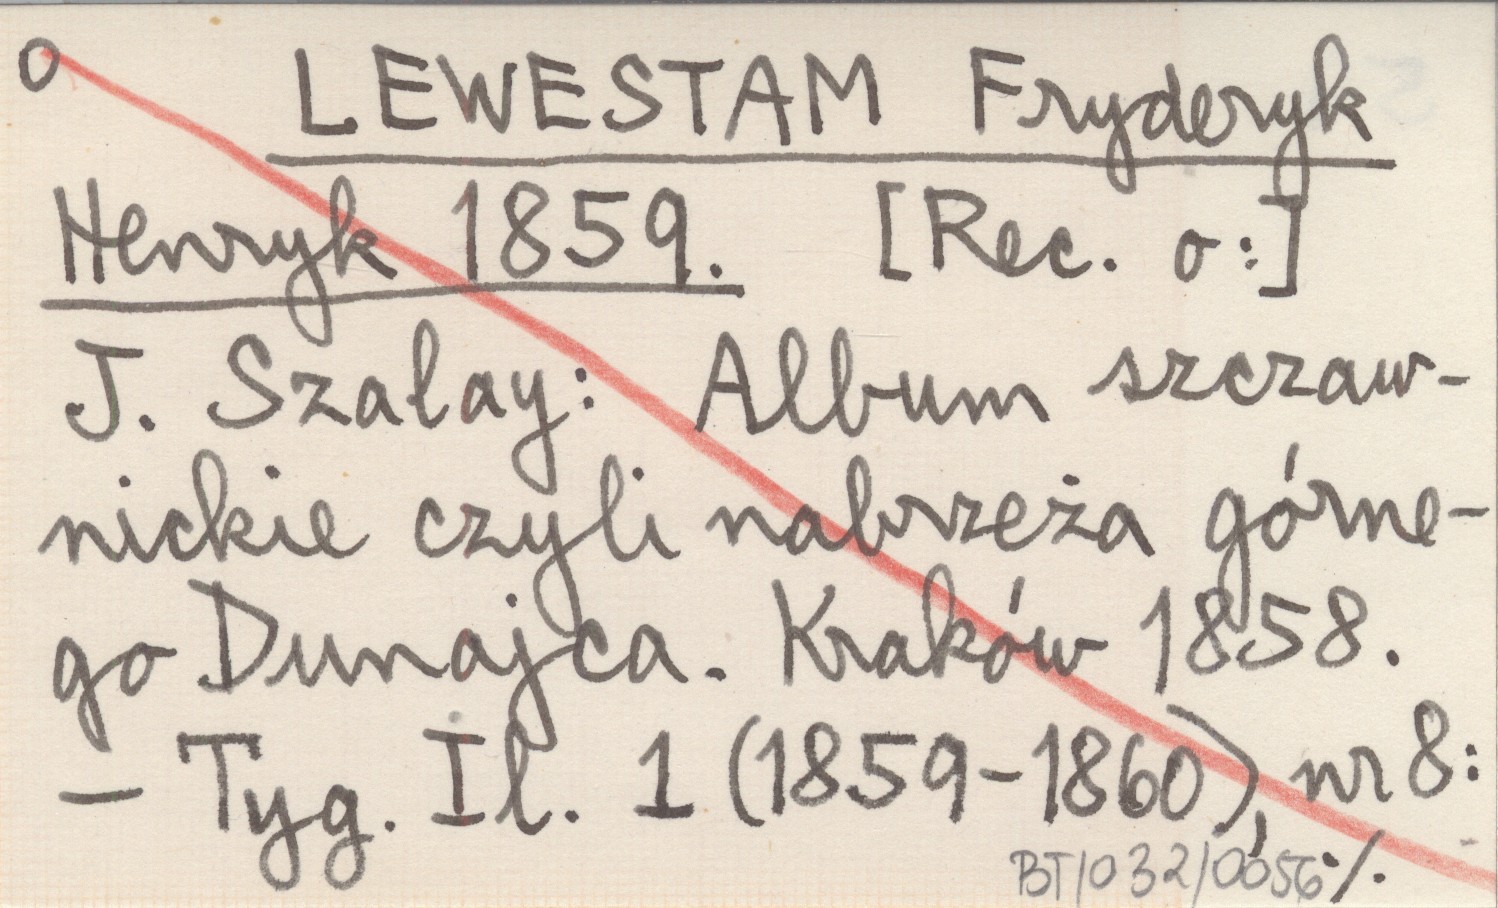 O LEWESTAM Fryderyk
Henryk 1859. [Rec. o:]
J. Szalay: Album szczaw-
nickie czyli nabrzeża górne-
go Dunajca. Kraków 1858.
— Tyg. Il. 1 (1859-1860), nr 8:
BT/032/0056 ·/.